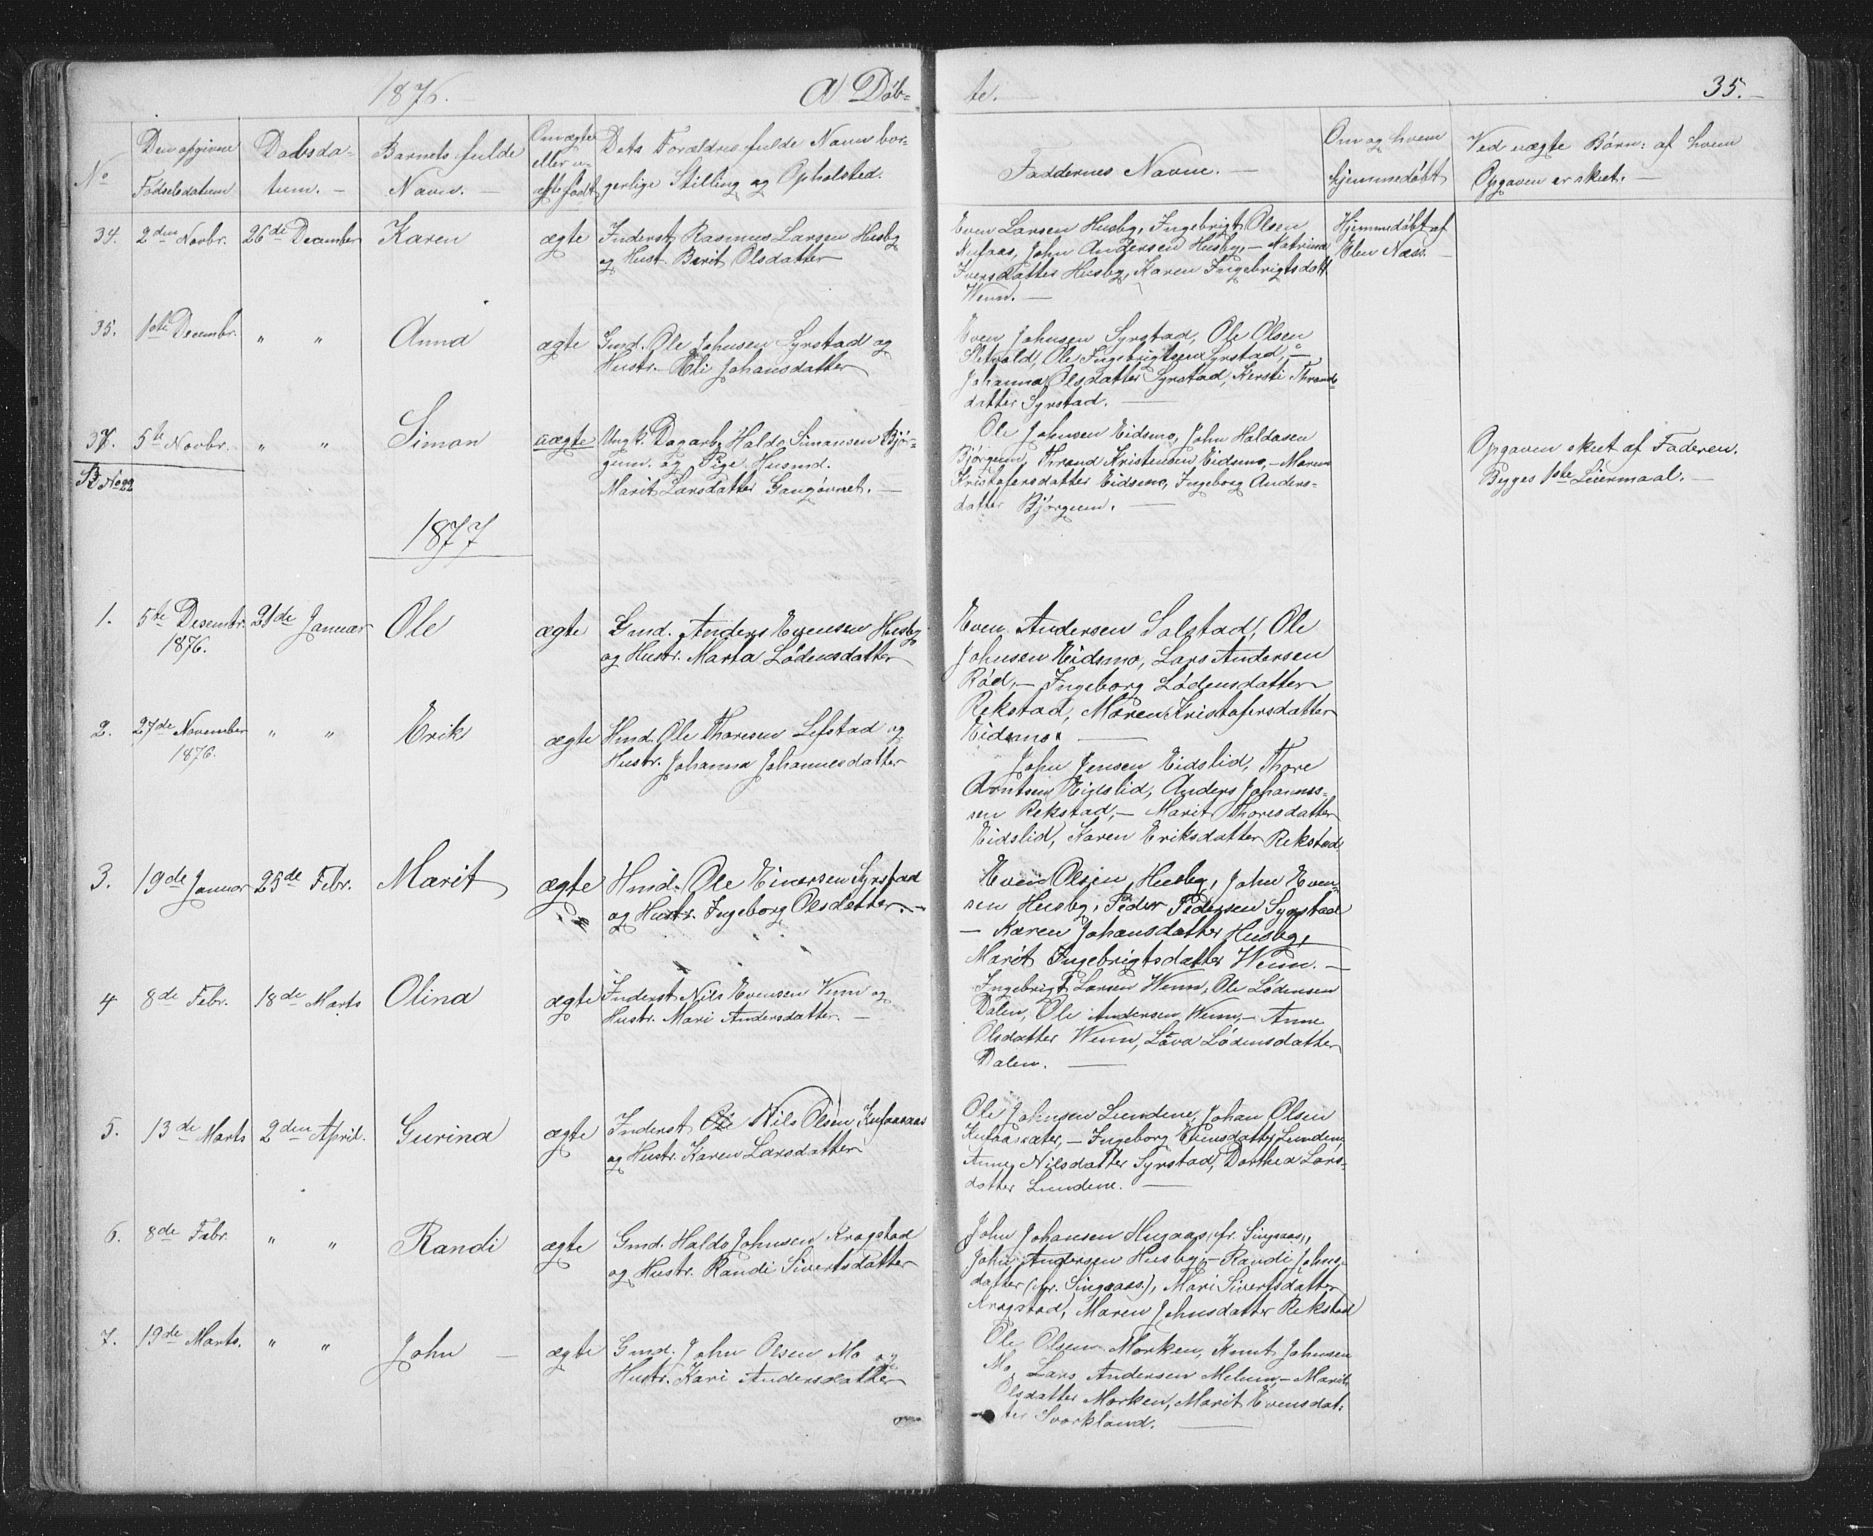 1876.
A) Døb-
te.
35.
No
Den opgivne
Fødselsdatum
Daabsda-
tum. -
Barnets fulde
Navn. -
Om ægte
eller u-
ægte født
Dets Forældres fulde Navn bor-
gerlige Stilling og Opholsted.
Faddernes Navne. -
Om og hvem
hjemmedøbt
Ved uægte Børn: af hvem
Opgaven er skeet. -
34. 2den Novbr. 26de December Karen ægte Inderst Rasmus Larsen Husby
og Hust. Berit Olsdatter
Even Larsen Husby, Ingebrigt Olsen
Kufaas, John Andersen Husby, - Katrina
Iversdatter Husby, Karen Ingebrigtsdatt
Wenn. -
Hjemmedøbt af
Elen Næss.
35. 1ste Decembr. " " Anna ægte Gmd. Ole Johnsen Syrstad og
Hustr. Eli Johansdatter
Even Johnsen Syrstad, Ole Olsen
Sletvold, Ole Ingebrigtsen Syrstad, -
Johanna Olsdatter Syrstad, Kersti Thrands-
datter Syrstad. -
37. 5te Novbr. " " Simon uægte Ungk. Dagarb. Haldo Simonsen Bjør-
gum. og Pige Husmd.
Marit Larsdatter Gangøvnet. -
B No 22
Ole Johnsen Eidsmo, John Haldosen
Bjørgum, Thrand Kristensen Eidsmo, - Maren
Kristofersdatter Eidsmo, Ingeborg Anders-
datter Bjørgum. -
Opgaven skeet af Faderen.
Begges 1ste Leiermaal. -
1877
1. 5te Desembr. 21de Januar Ole ægte Gmd. Anders Evensen Husby
1876. og Hustr. Marta Lødensdatter
Even Andersen Solstad, Ole
Johnsen Eidsmo, Lars Andersen
Rød, - Ingeborg Lødensdatter
Rekstad, Maren Kristofersdatter
Eidsmo. -
2. 27de November " " Erik ægte Hmd. Ole Thoresen Lefstad og
1876. Hustr. Johanna Johannesdatter
John Jensen Eidslid, Thore
Arntsen Eidslid, Anders Johannes-
sen Rekstad, - Marit Thoresdatter
Eidslid, Karen Eriksdatter Rekstad
3. 19de Januar 25de Febr. Marit ægte Hmd. Ole Einarsen Syrstad
og Hustr. Ingeborg Olsdatter. -
Even Olsen Husby, John Even-
sen Husby, Peder Pedersen Syrstad
- Karen Johansdatter Husby,
Marit Ingebrigtsdatter Wenn. -
4 8de Febr. 18de Marts Olina ægte Inderst Nils Evensen Venn og
Hustr. Mari Andersdatter. -
Ingebrigt Larsen Wenn, Ole Lødensen
Dalen, Ole Andersen Wenn, - Anne
Olsdatter Wenn, Lava Lødensdatter
Dalen. -
5. 13de Marts 2den April. Gurina ægte Inderst Ole Nils Olsen Kufaasaas
og Hustr. Karen Larsdatter
Ole Johnsen Lundene, Johan Olsen
Kufaassæter, - Ingeborg Evensdatter Lundene,
Anne Nilsdatter Syrstad, Dorthea Lars-
datter Lundene. -
6. 8de Febr. " " Randi ægte Gmd. Haldo Johnsen Kragstad
og Hustr. Randi Sivertsdatter
John Johansen Hugaas (fr. Singsaas),
John Andersen Husby, - Randi Johns-
datter (fr. Singsaas), Mari Sivertsdatter
Kragstad, Maren Johnsdatter Rekstad
7. 19de Marts. " " John - ægte Gmd. John Olsen Mo og
Hustr. Kari Andersdatter
Ole Olsen Morken, Knut Johnsen
Mo, Lars Andersen Melum, - Marit
Olsdatter Morken, Marit Evensdat-
ter Svorkland. -